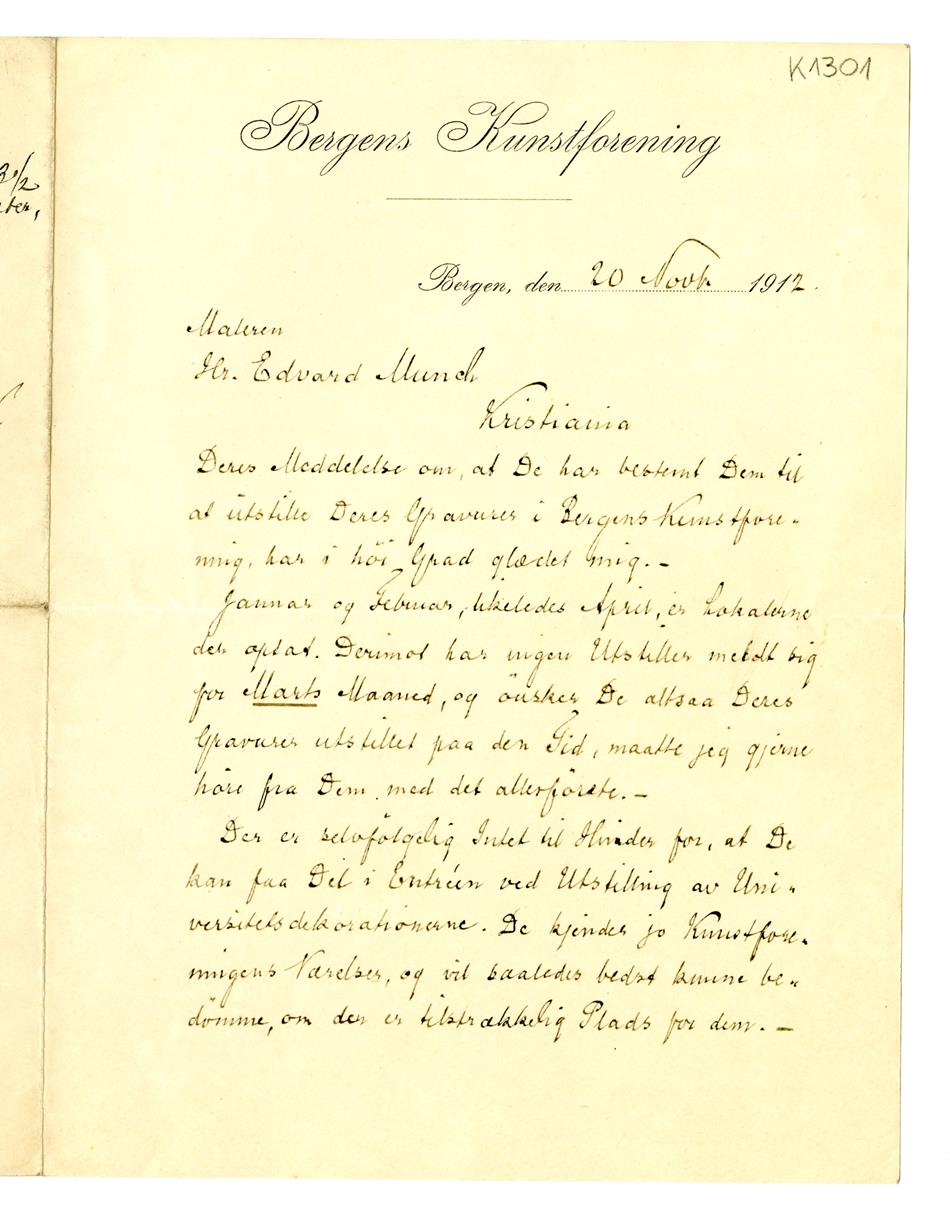 K1301
Bergens Kunstforening
3 1/2
Bergen, den 20 Novb. 1912.
Maleren
Hr. Edvard Munch
Kristiania
Deres Meddelelse om, at De har bestemt Dem til
at utstille Deres Gravurer i Bergens Kunstfore-
ning, har i höi Grad glædet mig. –
Januar og Februar, likeledes April, er Lokalerne
der optat. Derimot har ingen Utstiller meldt sig
for Marts Maaned, og önsker De altsaa Deres
Gravurer utstillet paa den Tid, maatte jeg gjerne
höre fra Dem med det allerförste. –
Der er selvfölgelig Intet til Hinder for, at De
kan faa Del i Entréen ved Utstilling av Uni-
versitetsdekorationerne. De kjender jo Kunstfore-
ningens Værelser, og vil saaledes bedst kunne be-
dömme, om der er tilstrækkelig Plads for dem. –